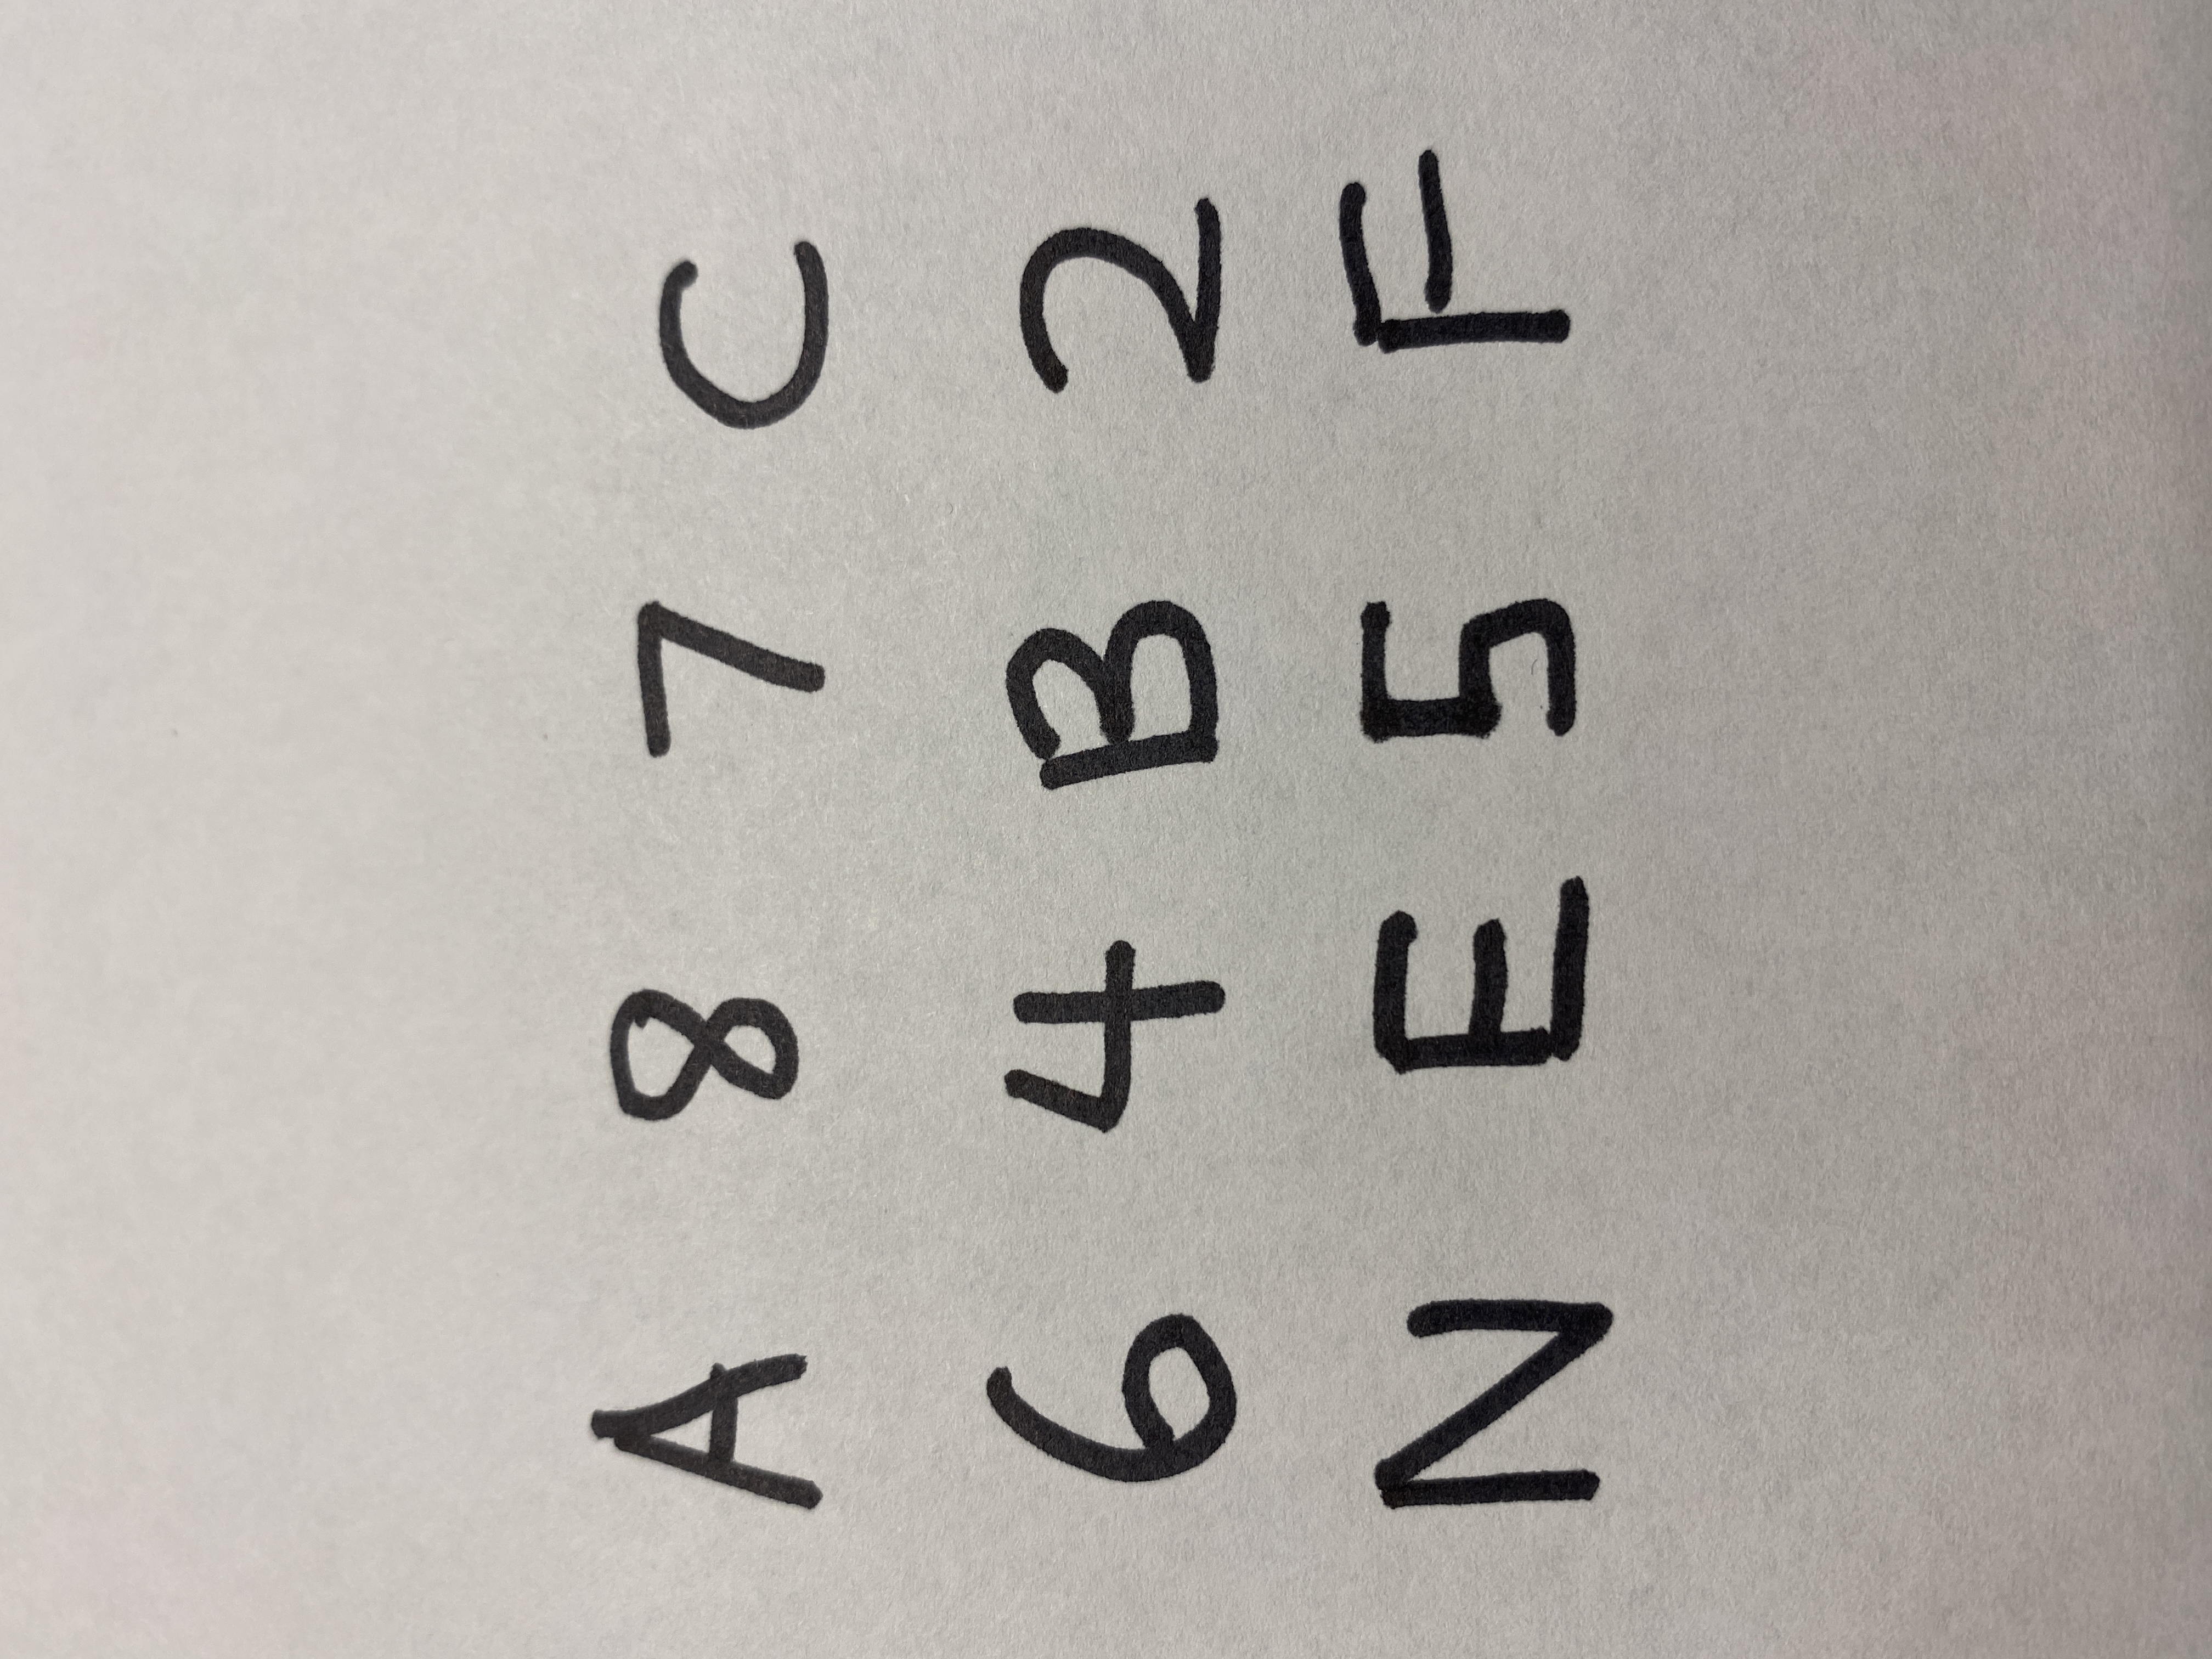 A 8 7 C
6 4 B 2
N E 5 F